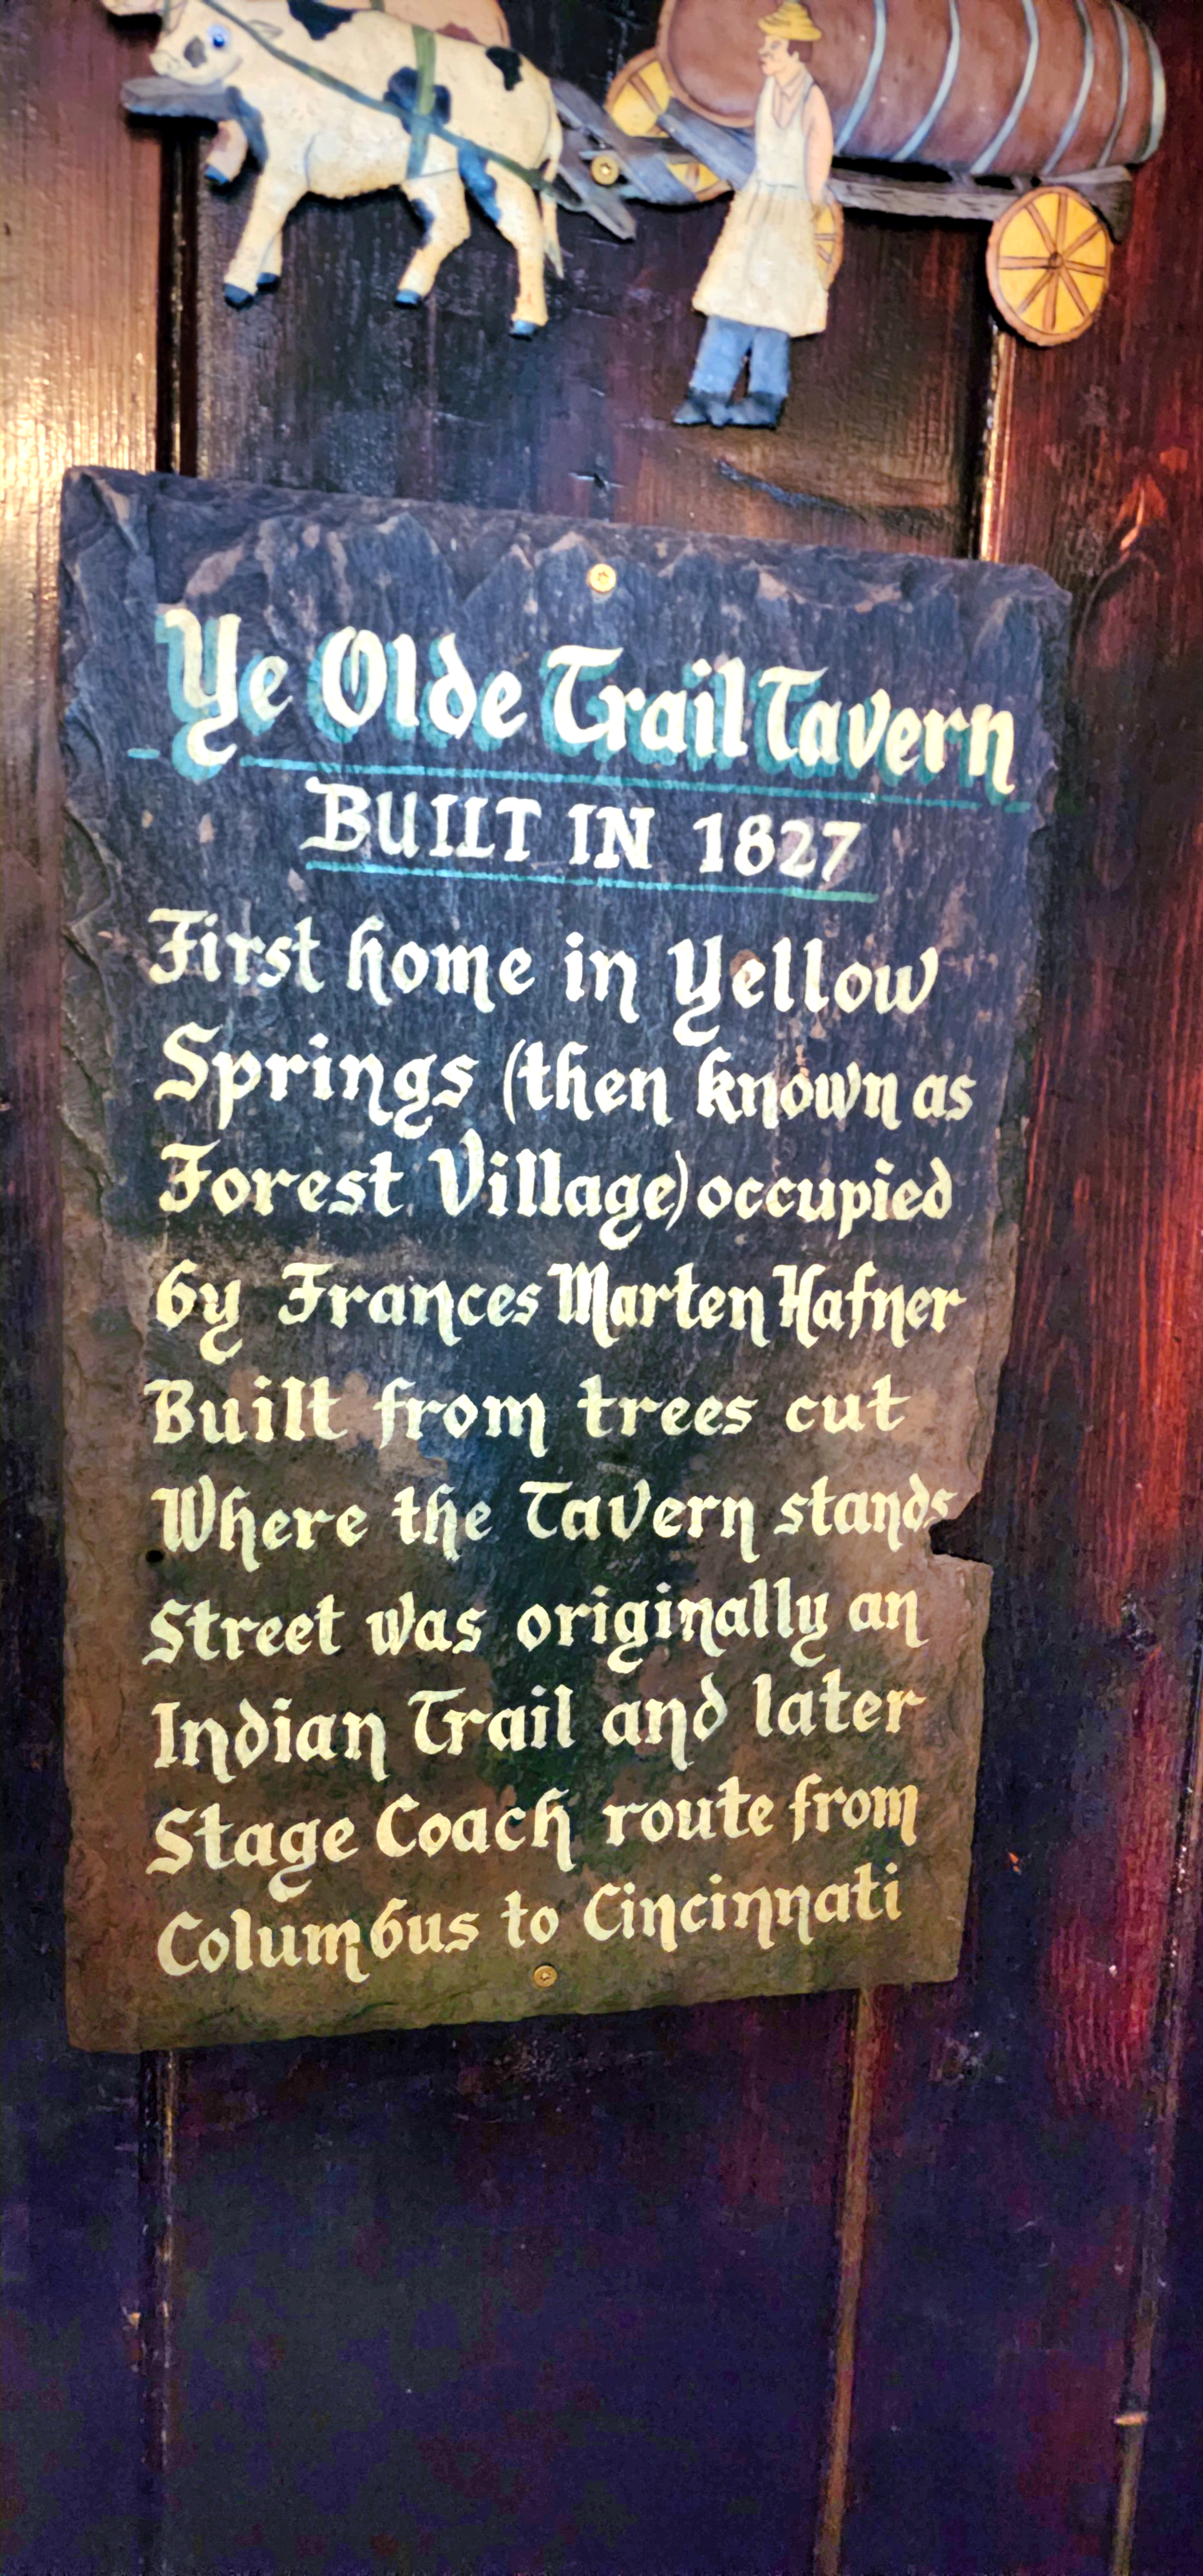 Ye Olde Trail Tavern
BUILT IN 1827
First home in Yellow
Springs (then known as
Forest Village) occupied
by Frances Marten Hafner
Built from trees cut
Where the Tavern stands
Street was originally an
Indian Trail and later
Stage Coach route from
Columbus to Cincinnati